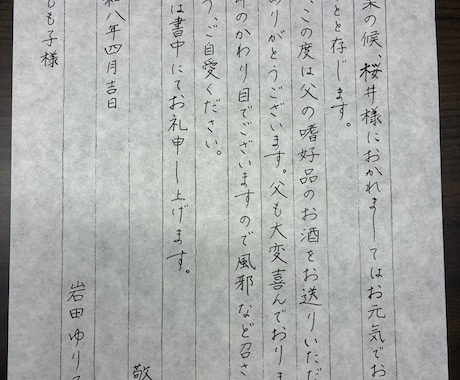 の候、桜井様におかれましてはお元気でお
とと存じます。
、この度は父の嗜好品のお酒をお送りいただ
ありがとうございます。父も大変喜んでおりま
のかわり目でございますので風邪など召さ
うご自愛ください。
は書中にてお礼申し上げます。
敬
和八年四月吉日
岩田ゆり
もも子様